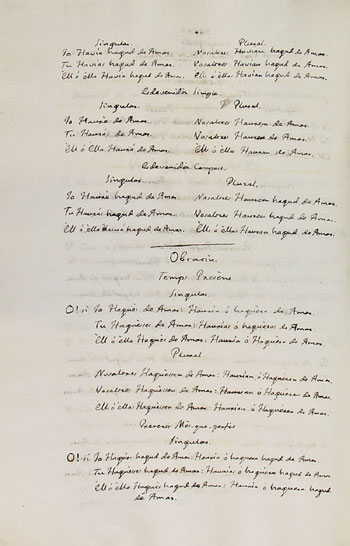 Singular. Plural.
Jo Havia hagut de Amar. Nosaltres Haviam hagut de Amar.
Tu Havias hagut de Amar. Vosaltres Haviau hagut de Amar.
Ell ó ella Havia hagut de Amar. Ells ó ellas Havian hagut de Amar.
Esdevenidor Simple
Singular. Plural.
Jo Hauré de Amar. Nosaltres Haurem de Amar.
Tu Haurás de Amar. Vosaltres Haureu de Amar.
Ell ó Ella Haurá de Amar. Ells ó Ellas Hauran de Amar.
Esdevenidor Compost.
Singular. Plural.
Jo Hauré hagut de Amar. Nosaltres Haurem hagut de Amar.
Tu Haurás hagut de Amar. Vosaltres Haureu hagut de Amar.
Ell ó ella Haurá hagut de Amar. Ells ó ellas Hauran hagut de Amar.
Temps
Singular.
O! si Jo Hagués de Amar: Hauria ó haguera de Amar.
Tu Haguesses de Amar: Haurias ó hagueras de Amar.
Ell ó ella Hagués de Amar: Hauria ó haguera de Amar.
Plural.
Nosaltres Haguessem de Amar: Hauriam ó hagueram de Amar.
Vosaltres Haguesseu de Amar: Hauriau ó haguerau de Amar.
Ells ó ellas Haguessen de Amar: Haurian ó hagueran de Amar.
Preterit Més que perfet
Singular.
O! si Jo Hagués hagut de Amar: Hauria ó haguera hagut de Amar.
Tu Haguesses hagut de Amar: Haurias ó hagueras hagut de Amar.
Ell ó ella Hagués hagut de Amar: Hauria ó haguera hagut
de Amar.